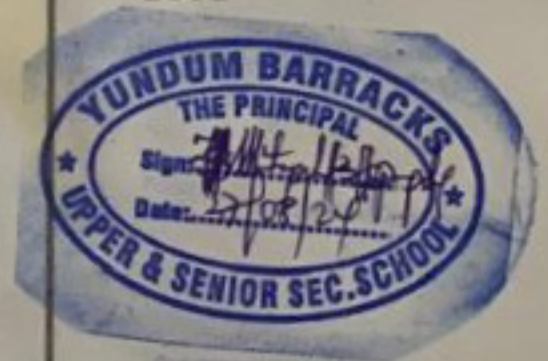 YUNDUM BARRACKS
THE PRINCIPAL
Sign:
Date: 27/08/24
UPPER & SENIOR SEC. SCHOOL